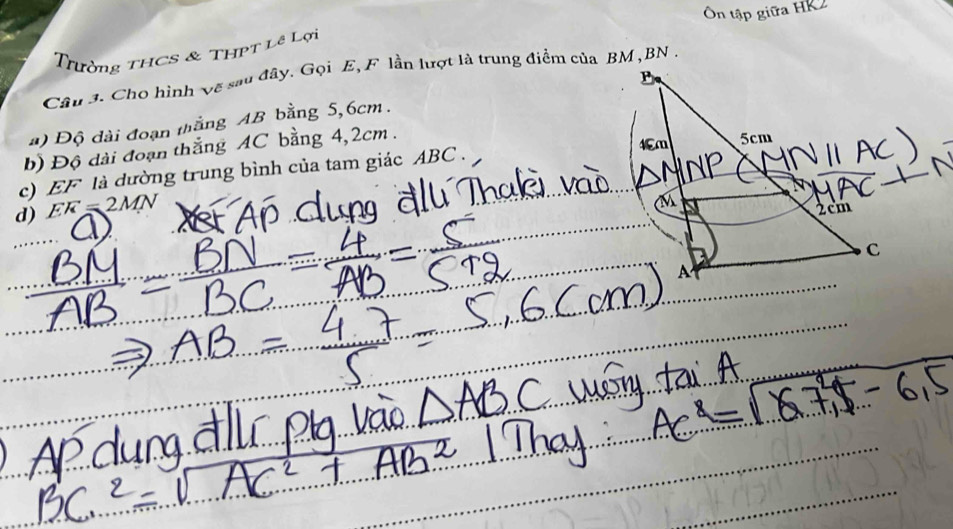 Ôn tập giữa HK2
Trường THCS & THPT Lê Lợi
Câu 3. Cho hình vẽ sau đây. Gọi E, F lần lượt là trung điểm của BM, BN .
a) Độ dài đoạn thẳng AB bằng 5,6cm .
b) Độ dài đoạn thẳng AC bằng 4,2cm .
c) EF là đường trung bình của tam giác ABC .
d) EF = 2MN
B
4cm
5cm
M
N
2cm
A
C
a) Áp dụng đlí Thalès vào ΔMNP (MN // AC)
BM/AB = BN/BC = 4/AB = 5/5+2
⇒ AB = 4.7/5 = 5,6 (cm)
Áp dụng đlí ptg vào ΔABC vuông tại A
BC² = √AC² + AB² | Thay : AC² =